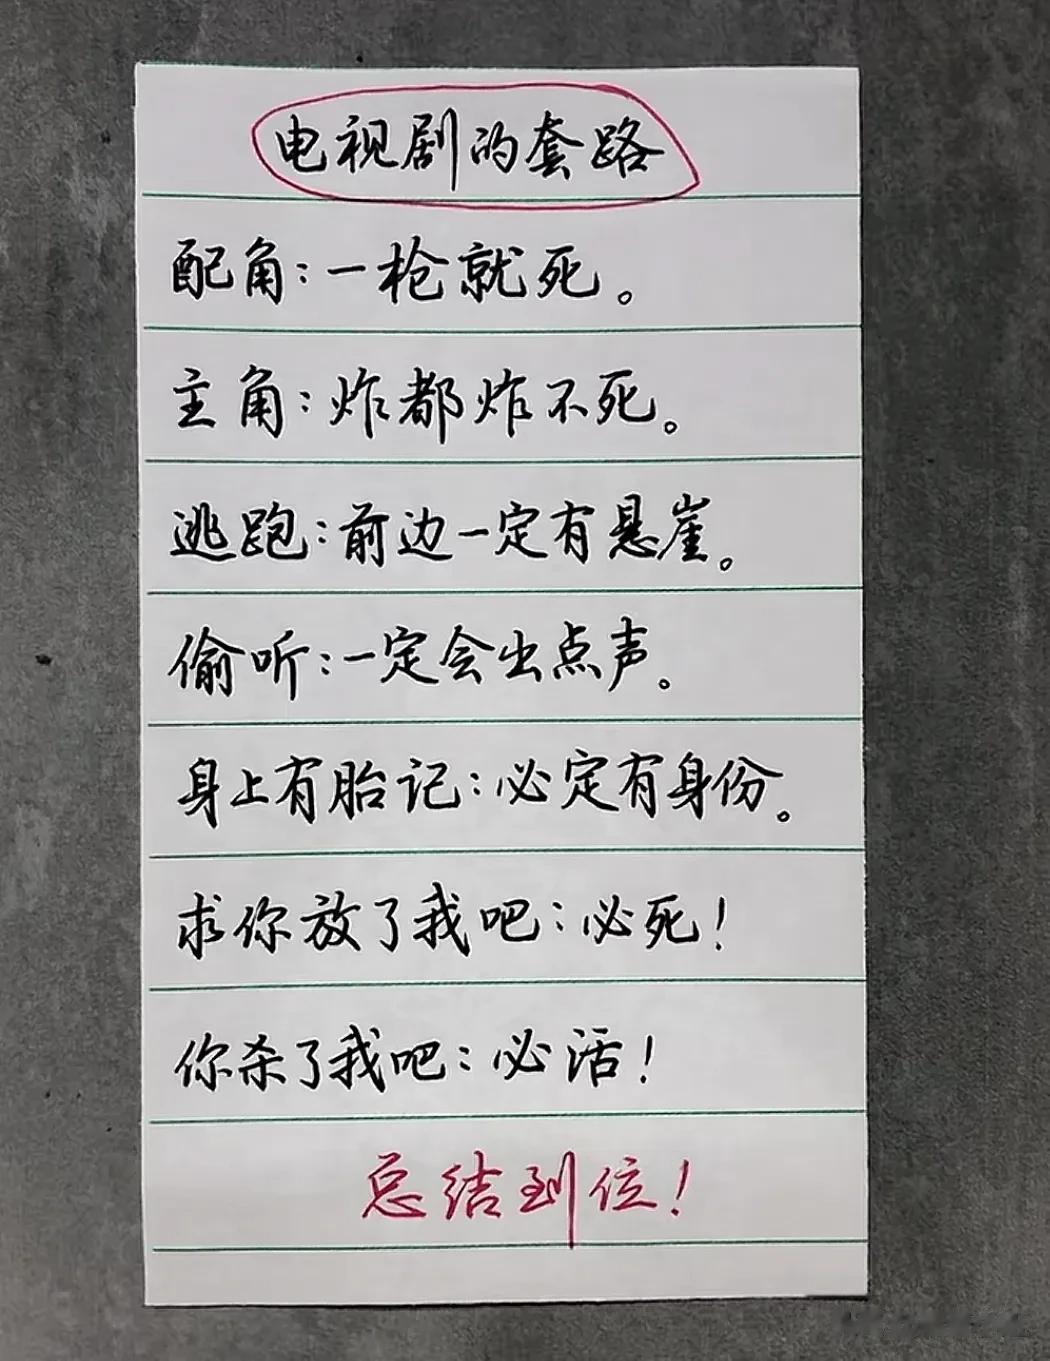 电视剧的套路
配角:一枪就死。
主角:炸都炸不死。
逃跑:前边一定有悬崖。
偷听:一定会出点声。
身上有胎记:必定有身份。
求你放了我吧:必死!
你杀了我吧:必活!
总结到位!